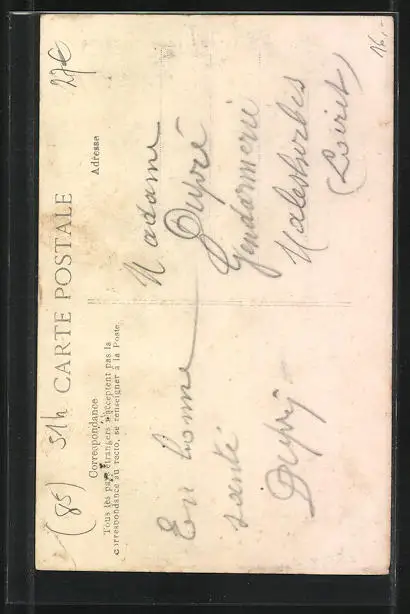 (85) 51h CARTE POSTALE
27€
16.-
Correspondance
Tous les pays étrangers n'acceptent pas la
correspondance au recto, se renseigner à la Poste.
Adresse
En bonne
santé
Madame
Dupré
Gendarmerie
Malesherbes
(Loiret)